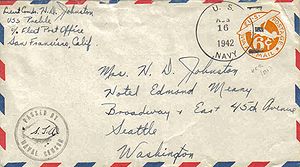 Lieut Comdr. H. D. Johnston
USS Preble
c/o Fleet Post Office
San Francisco, Calif.
U. S.
16
1942
NAVY
U.S. POSTAGE
6¢
AIR MAIL
Mrs. H. D. Johnston
Hotel Edmond Meany
Broadway & East 45th Avenue
Seattle
Washington
PASSED BY
NAVAL CENSOR